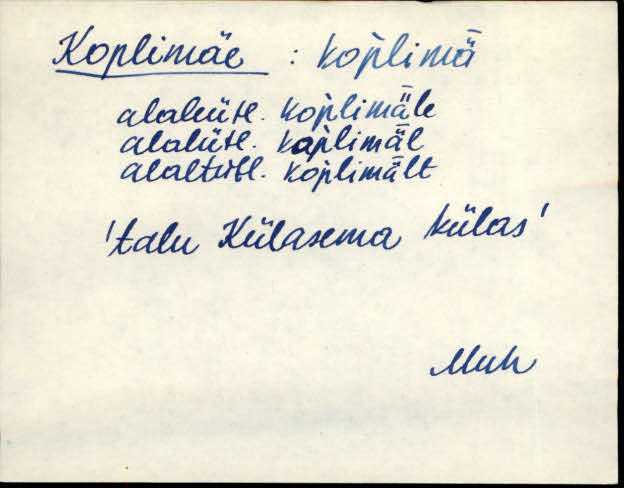 Koplimäe : kop̀limǟ
alaleütl. kop̀limǟle
alalütl. kap̀limǟl
alaltütl. kop̀limǟlt
'talu Külasema külas'
Muh